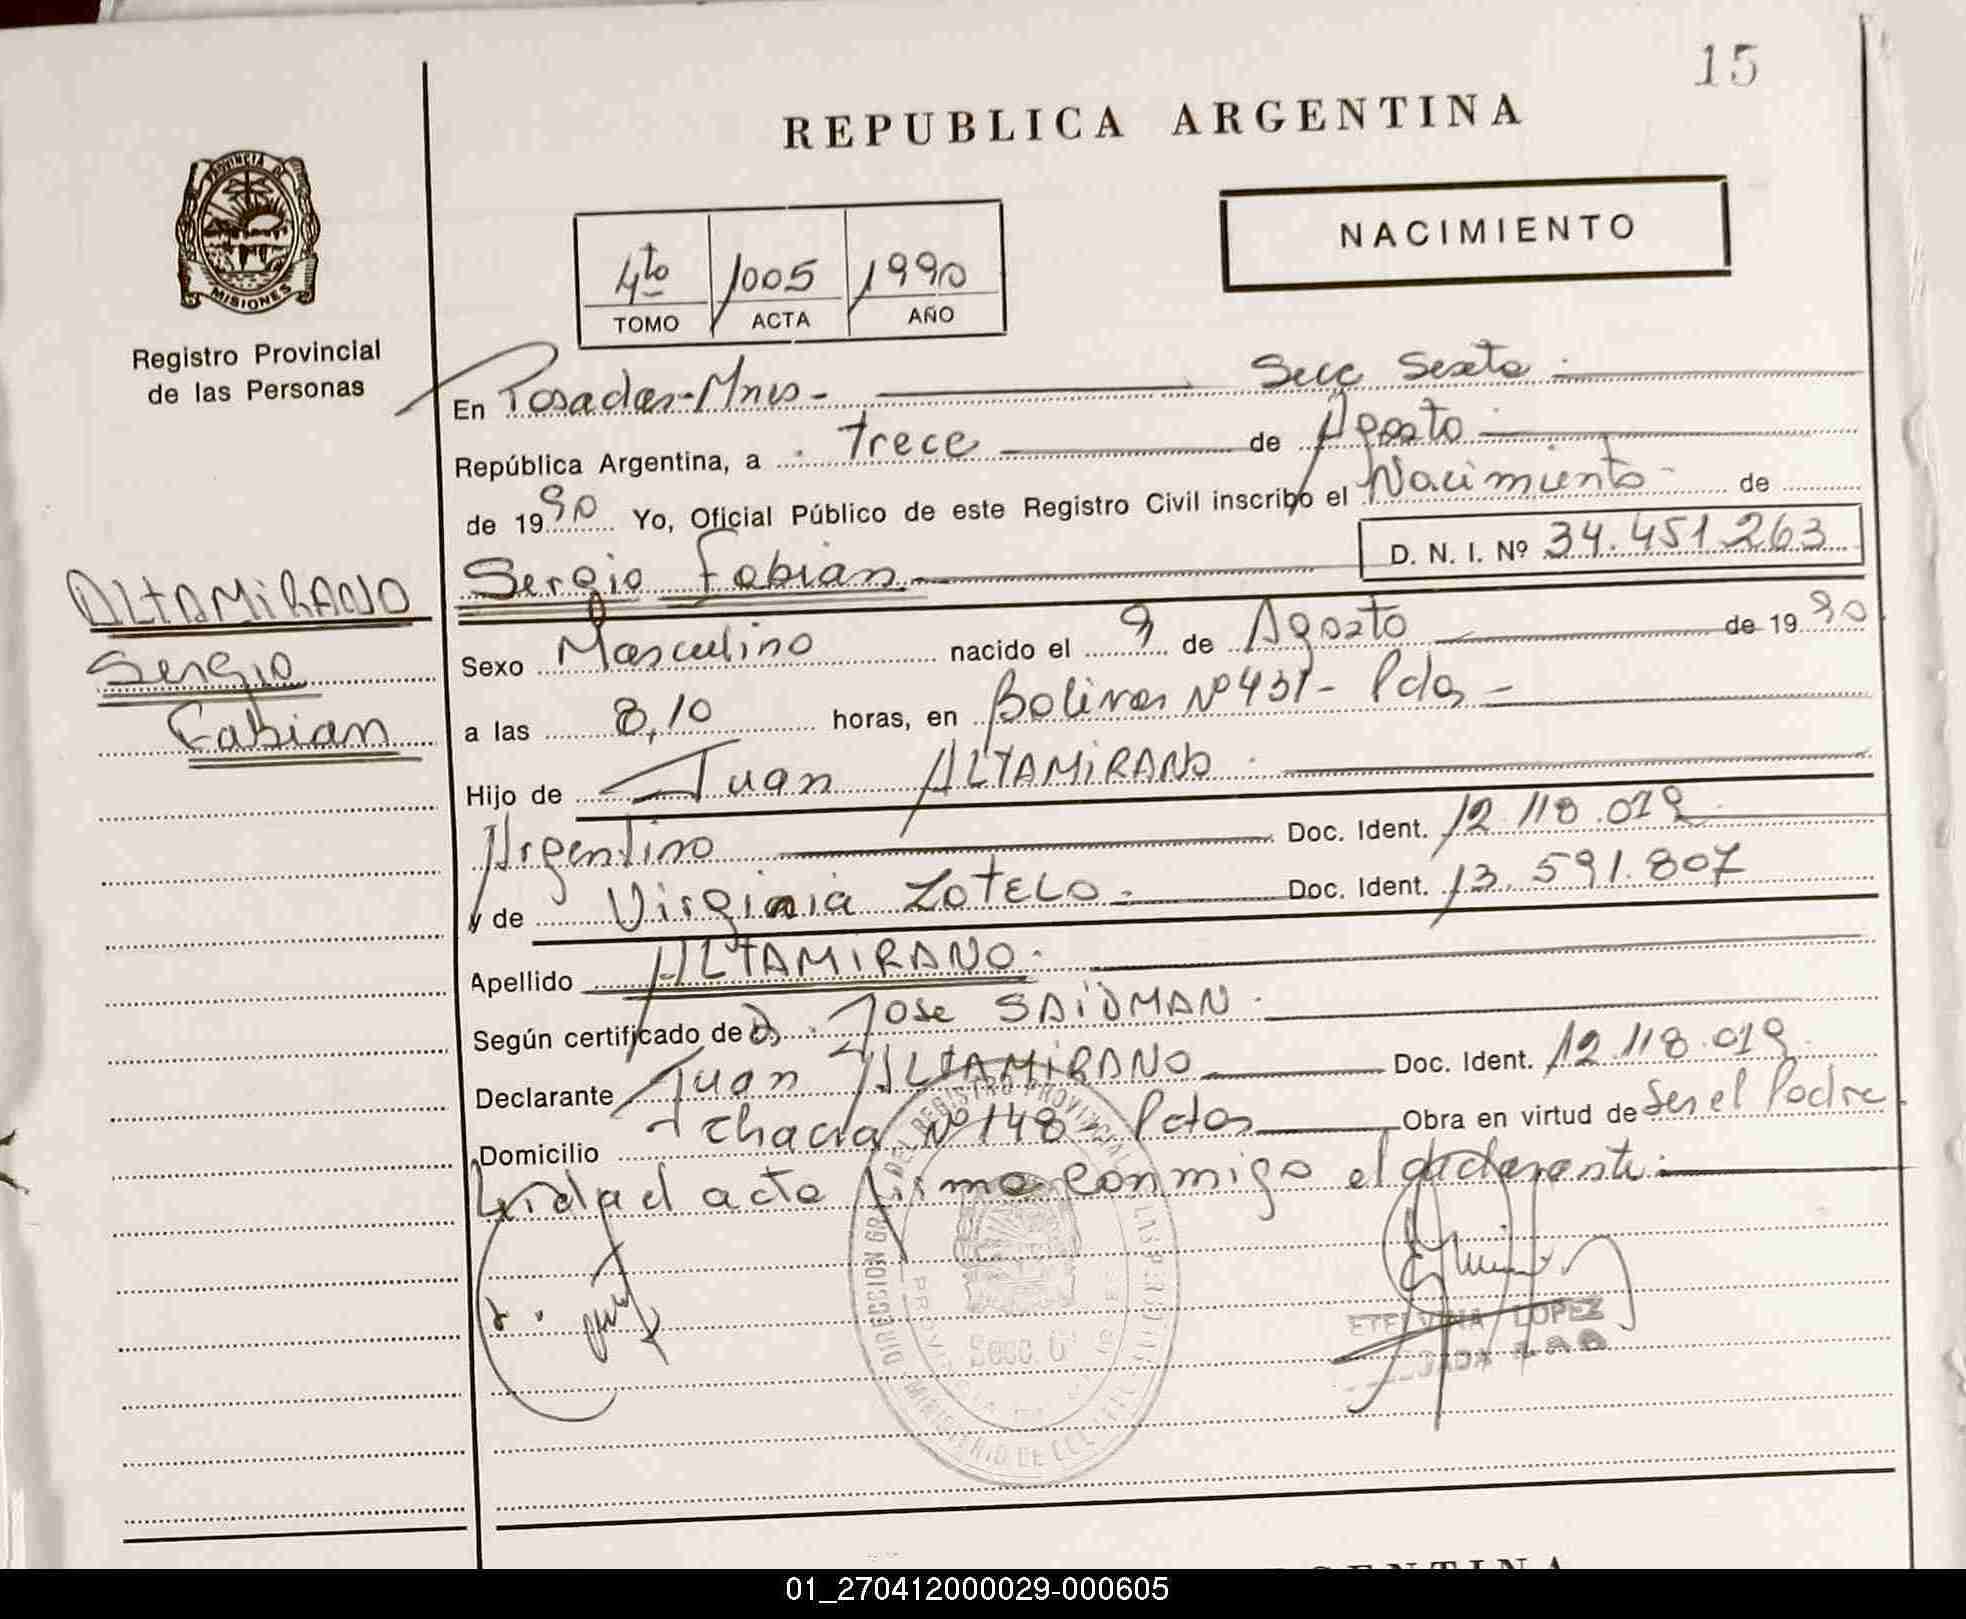 15
REPUBLICA ARGENTINA
NACIMIENTO
PROVINCIA DE
MISIONES
Registro Provincial
de las Personas
4to 1005 1990
TOMO ACTA AÑO
En Posadas-Mnes- Secc Sexta
República Argentina, a trece de Agosto
de 1990 Yo, Oficial Público de este Registro Civil inscribo el Nacimiento de
Sergio Fabian D. N. I. Nº 34.451.263
ALTAMIRANO
Sergio
Fabian
Sexo Masculino nacido el 9 de Agosto de 1990
a las 8,10 horas, en Bolivar Nº 431- Pdas -
Hijo de Juan ALTAMIRANO
Argentino Doc. Ident. 12.118.019
y de Virginia ZOTELO Doc. Ident. 13.591.807
Apellido ALTAMIRANO.
Según certificado de D. Jose SAIDMAN
Declarante Juan ALTAMIRANO Doc. Ident. 12.118.019
Domicilio Chacra Nº 148 - Pdas Obra en virtud de Ser el Padre
Leida el acta firma conmigo el declarante
DIRECCION GRAL DEL REGISTRO PROVINCIAL DE LAS PERSONAS
Secc. 6ª
MINISTERIO DE
ETELVINA LOPEZ
ARGENTINA
01_270412000029-000605